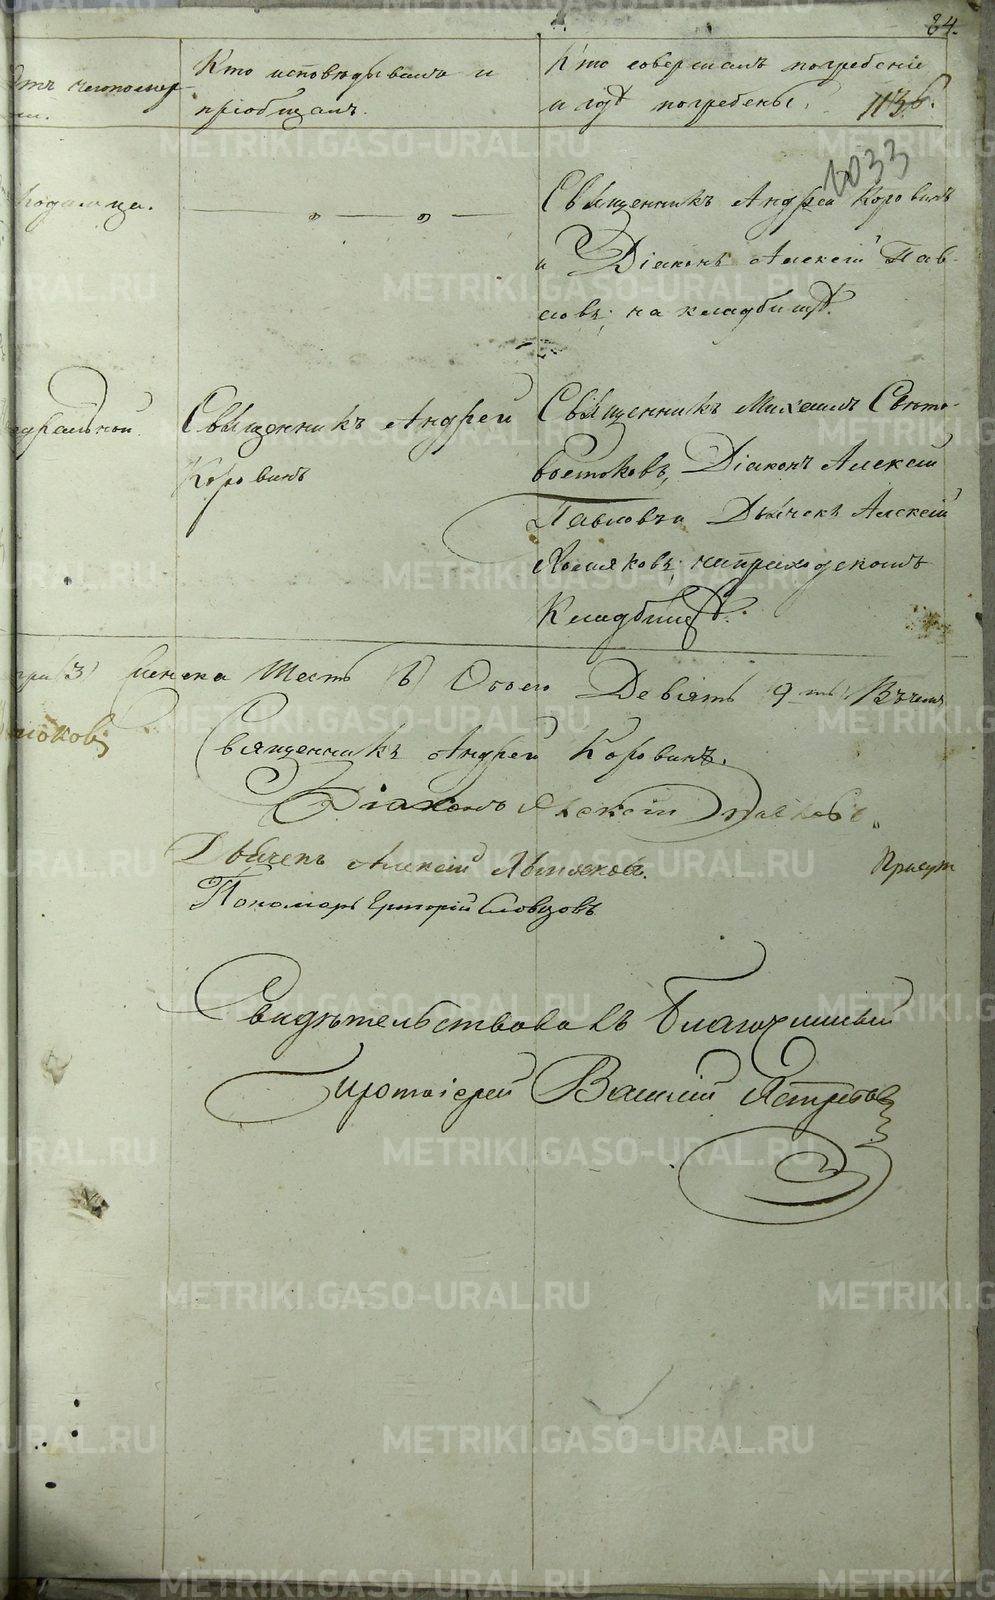 84.
Кто исповѣдывалъ и
пріобщалъ.
Кто совершалъ погребеніе
и гдѣ погребены.
1136.
1033
Священникъ Андрей Коровинъ
и Діаконъ Алексій Пав-
ловъ; на кладбищѣ.
едральной
Священникъ Андрей
Коровинъ
Священникъ Михаилъ Свето-
востоковъ, Діаконъ Алексій
Павловъ и Дьячекъ Алексій
Хмыляковъ; на приходскомъ
Кладбищѣ.
три (3) Женска Шесть (6) Обоего Девять 9ть. Въ чемъ
Священникъ Андрей Коровинъ.
Діаконъ Алексій Павловъ
Дьячекъ Алексій
Присут
Пономарь Григорій Словцовъ
Свидѣтельствовалъ Благочинный
Протоіерей Василій Ястребовъ
METRIKI.GASO-URAL.RU